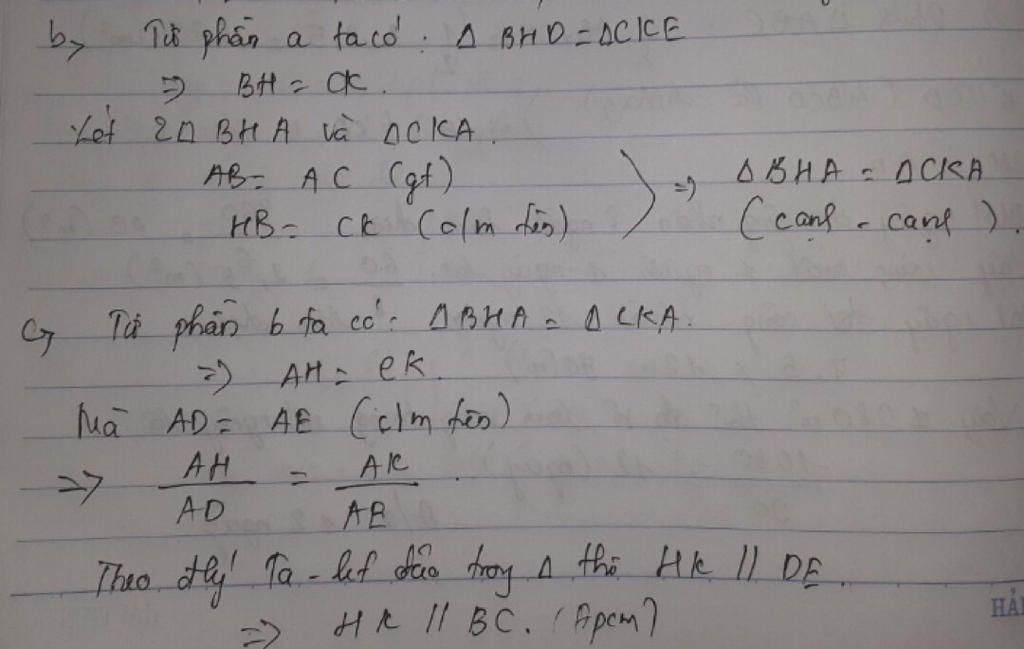 b, Từ phần a ta có: Δ BHD = ΔCKE
=> BH = CK.
Xét 2Δ BHA và ΔCKA.
AB = AC (gt)
HB = CK (c/m trên)
=> ΔBHA = ΔCKA
(cạnh - cạnh).
c, Từ phần b ta có: ΔBHA = ΔCKA.
=> AH = ek.
Mà AD = AE (c/m trên)
=> AH/AD = AK/AE.
Theo đlý Ta-let đảo trong Δ thì HK // DE.
=> HK // BC. (đpcm)
HẢI